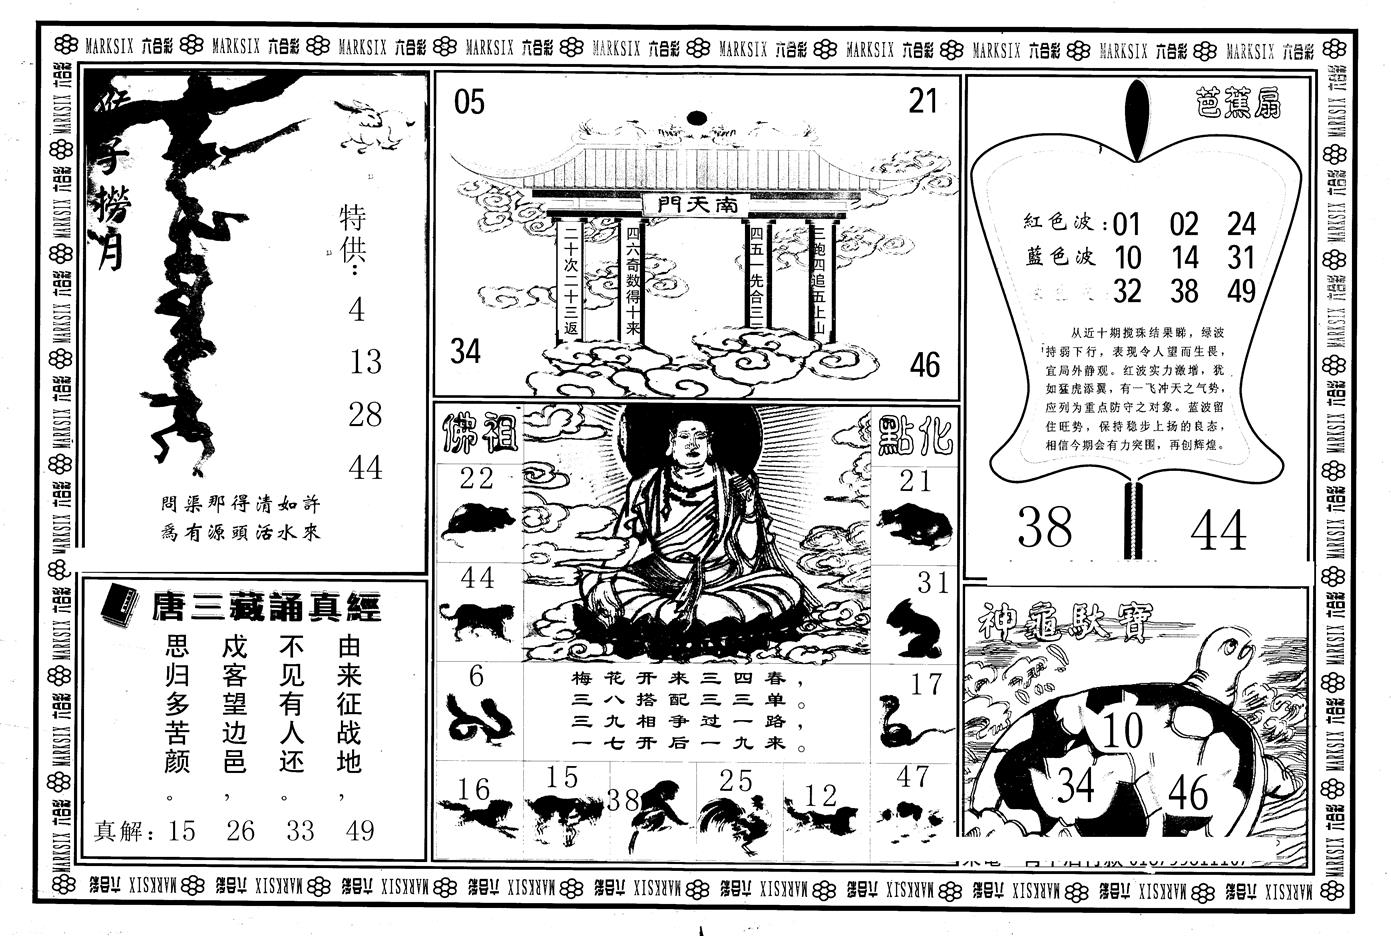 MARKSIX 六合彩 MARKSIX 六合彩 MARKSIX 六合彩 MARKSIX 六合彩 MARKSIX 六合彩 MARKSIX 六合彩 MARKSIX 六合彩 MARKSIX 六合彩 MARKSIX 六合彩 MARKSIX
猴子撈月
特供：
4
13
28
44
問渠那得清如許
爲有源頭活水來
唐三藏誦真經
由来征战地，
不见有人还。
戍客望边邑，
思归多苦颜。
真解：15 26 33 49
05
21
南天門
二十次二十三返
四六奇数得十来
四五一先合三三
三跑四追五上山
34
46
佛祖
點化
22
21
44
31
6
17
梅花开来三四春，
三八搭配三三单。
三九相争过一路，
一七开后一九来。
16
15
38
25
12
47
芭蕉扇
紅色波：01 02 24
藍色波 10 14 31
32 38 49
从近十期搅珠结果睇，绿波
持弱下行，表现令人望而生畏，
宜局外静观。红波实力激增，犹
如猛虎添翼，有一飞冲天之气势，
应列为重点防守之对象。蓝波留
住旺势，保持稳步上扬的良态，
相信今期会有力突围，再创辉煌。
38
44
神龜馱寶
10
34
46